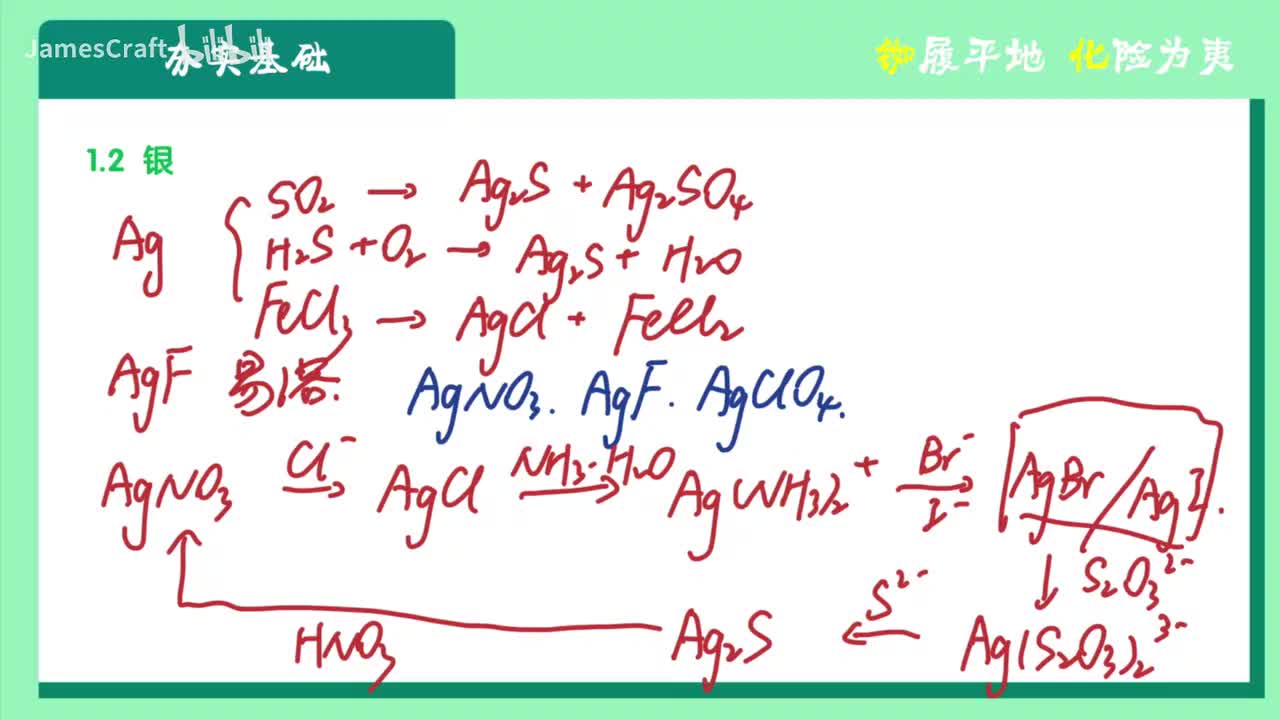 JamesCraft bilibili
夯实基础
物履平地 化险为夷
1.2 银
Ag { SO₂ → Ag₂S + Ag₂SO₄
H₂S + O₂ → Ag₂S + H₂O
FeCl₃ → AgCl + FeCl₂
AgF 易溶. AgNO₃. AgF. AgClO₄.
AgNO₃ Cl⁻ → AgCl NH₃·H₂O → Ag(NH₃)₂⁺ Br⁻ I⁻ → [AgBr/AgI].
↓ S₂O₃²⁻
HNO₃ Ag₂S ← S²⁻ Ag(S₂O₃)₂³⁻